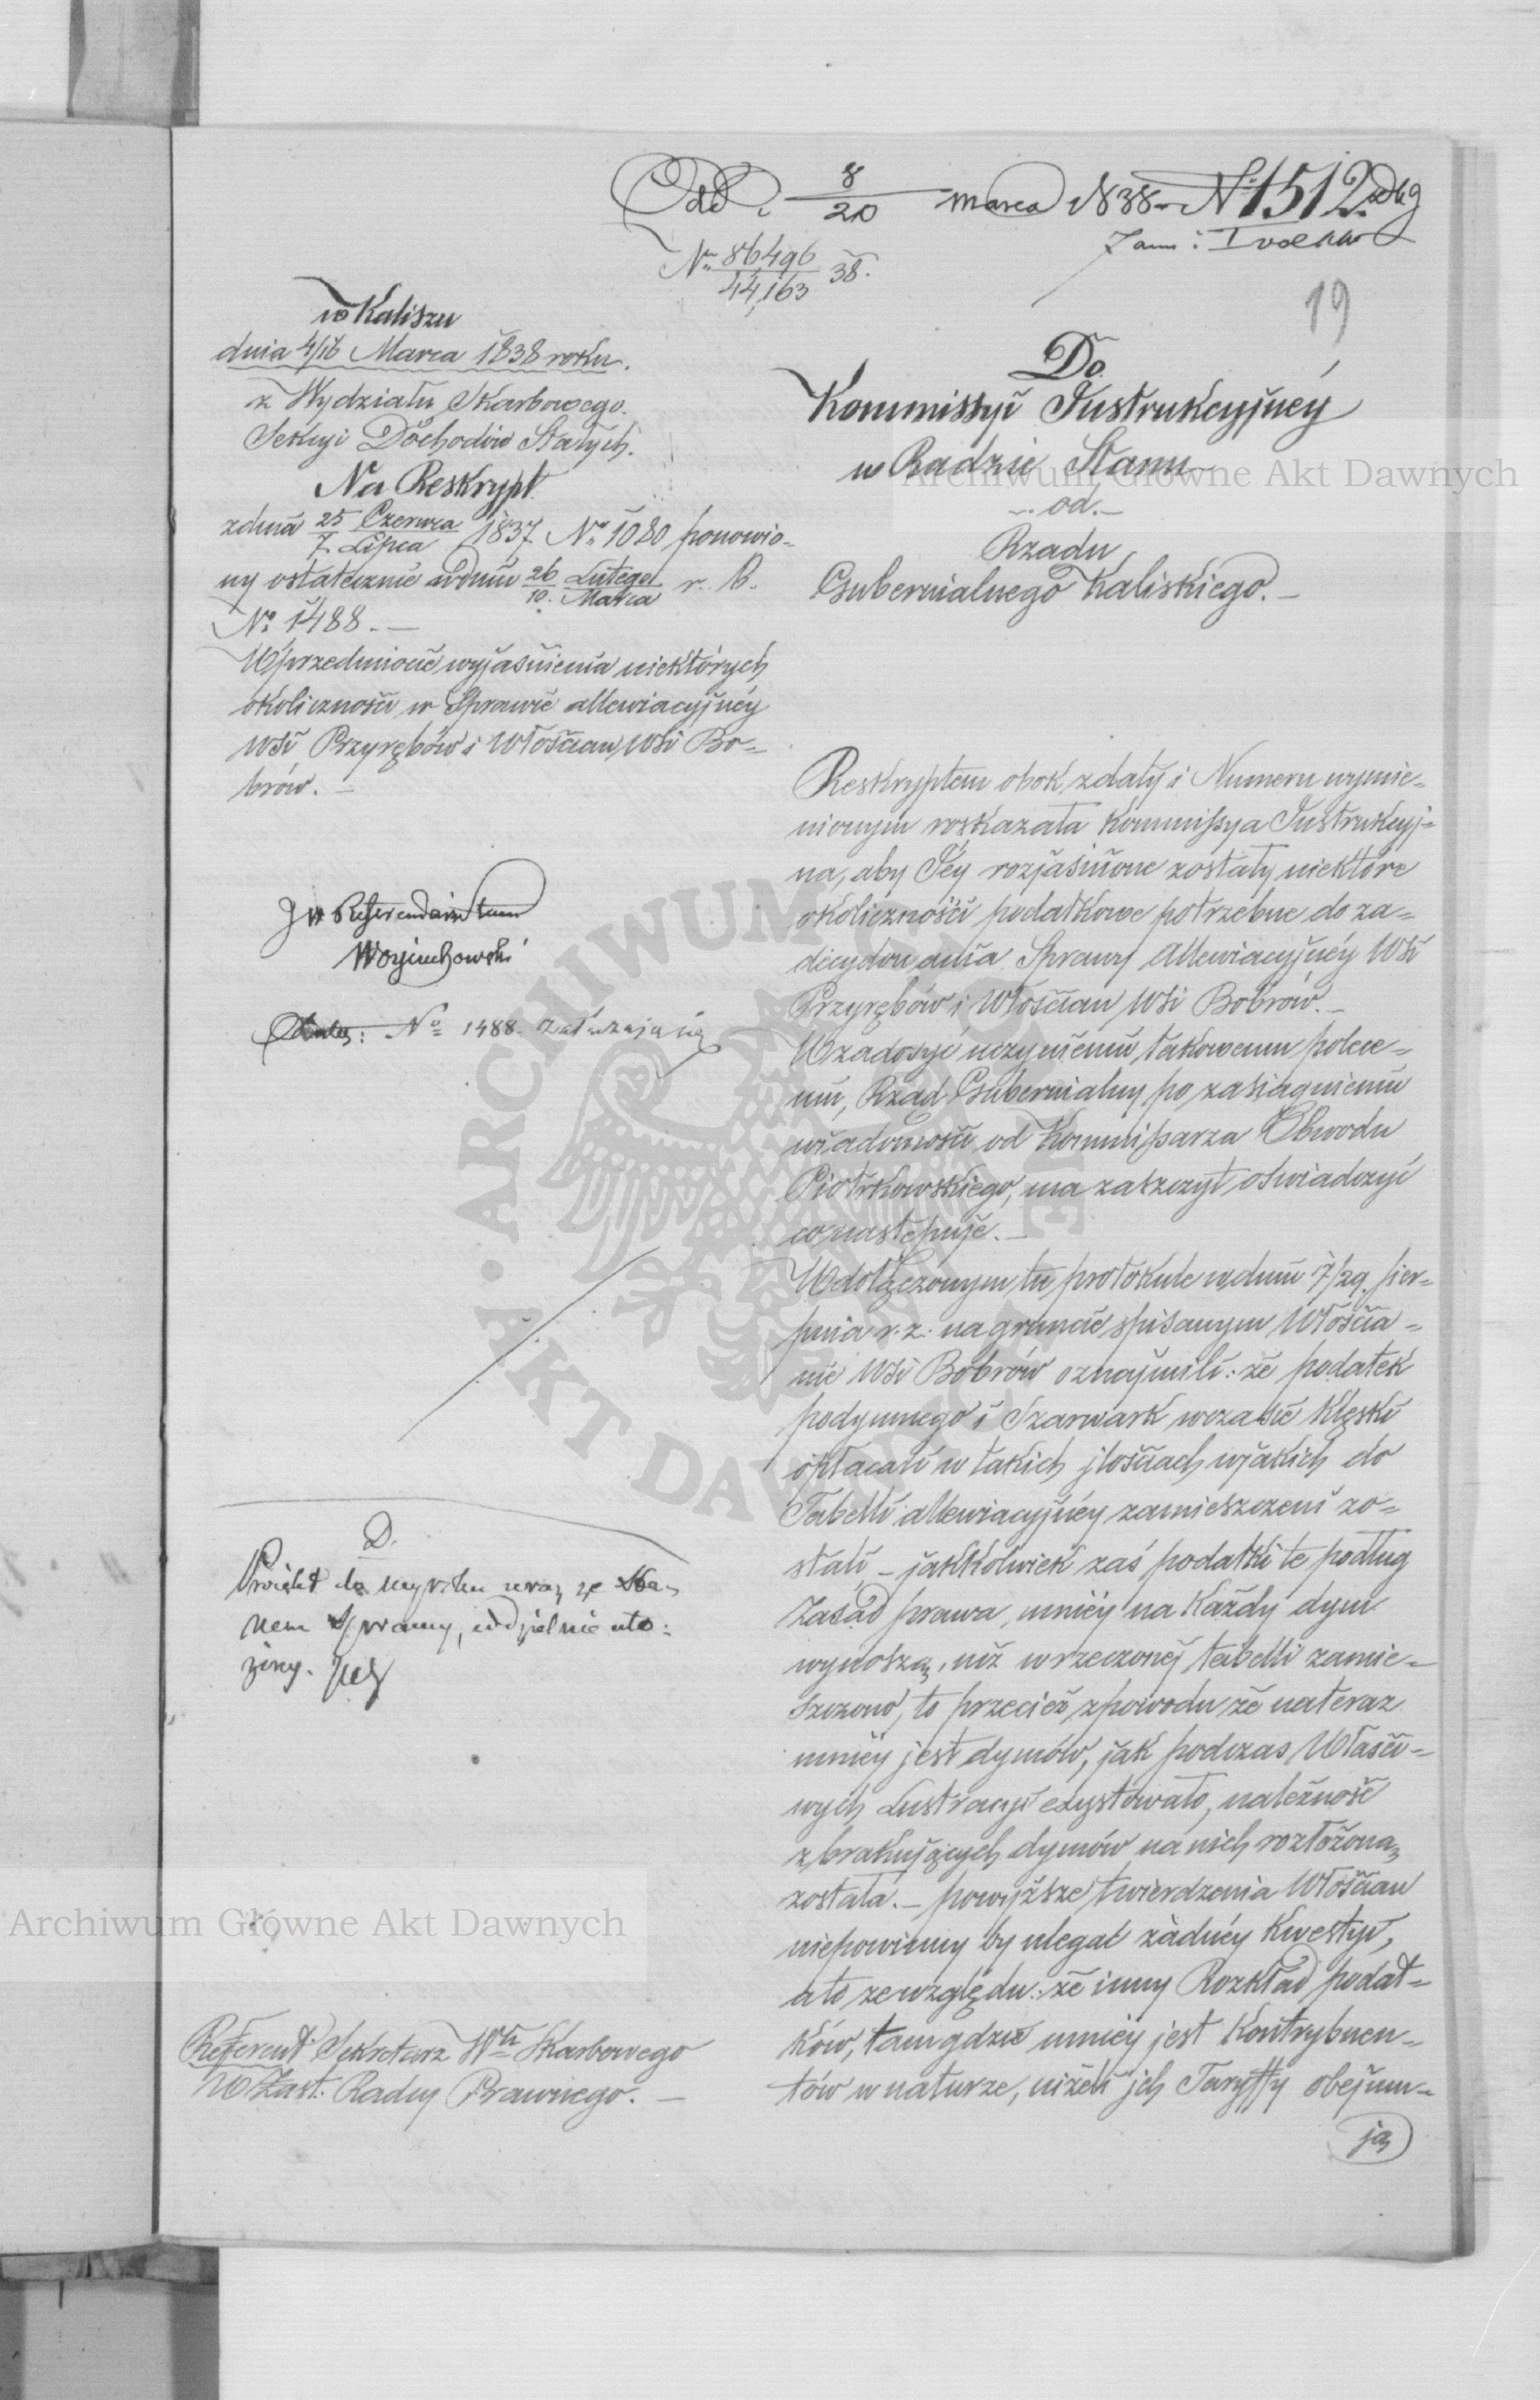 Odd. 8/20 marca 1838 N. 1512
No. 86496/44,163 38.
19
w Kaliszu
dnia 4/16 Marca 1838 roku.
z Wydziału Skarbowego.
Sekcyi Dochodów Stałych.
Na Reskrypt
z dnia 25 Czerwca/7. Lipca 1837 No. 1080 ponowio=
ny ostatecznie w dniu 26 Lutego/10. Marca r. b.
No. 1488. —
W przedmiocie wyjaśnienia niektórych
okoliczności w Sprawie allewiacyjnéy
Wsi Przyrębów i Włościan Wsi Bo=
brów. —
JW Referendarz Stanu
Wojciechowski
No 1488. załączają się
D.
Projekt do wyroku wraz ze Sta=
nem Sprawy, oddzielnie uło=
żony.
Referent Sekretarz Włu Skarbowego
W Zast. Radcy Prawnego. —
Do
Kommissyi Instrukcyjnéy
w Radzie Stanu
— od. —
Rządu
Gubernialnego Kaliskiego. —
Reskryptem obok z daty i Numeru wymie=
nionym rozkazała Kommissya Instrukcyj=
na, aby Jéy rozjaśnione zostały niektóre
okoliczności podatkowe potrzebne do za=
decydowania Sprawy Allewiacyjnéy Wsi
Przyrębów i Włościan Wsi Bobrów. —
W zadosyć uczynieniu takowemu polece=
niu, Rząd Gubernialny po zasiągnieniu
wiadomości od Kommissarza Obwodu
Piotrkowskiego, ma zaszczyt oświadczyć
co następuje. —
W dołączonym tu protokule w dniu 7/29. sier=
pnia r. z. na gruncie spisanym Włościa=
nie Wsi Bobrów oznaymili: że podatek
podymnego i Szarwark w czasie klęski
opłacali w takich jlościach w jakich do
Tabelli allewiacyjnéy zamieszczeni zo=
stali — jakkolwiek zaś podatki te podług
Zasad prawa, mniéy na każdy dym
wynoszą, niż w rzeczonéj tabelli zamie=
szczono, to przecież z powodu że na teraz
mniéy jest dymów, jak podczas Właści=
wych Lustracyi exystowało, należność
z brakujących dymów na nich rozłożoną
została. — powyższe twierdzenia Włościan
niepowinny by ulegać żadnéy Kwestyi,
a to ze względu: że inny Rozkład podat=
ków, tam gdzie mniéy jest Kontrybuen=
tów w naturze, niżeli jch Taryffy obejmu=
ją
Archiwum Główne Akt Dawnych
Archiwum Główne Akt Dawnych
ARCHIWUM GŁÓWNE AKT DAWNYCH